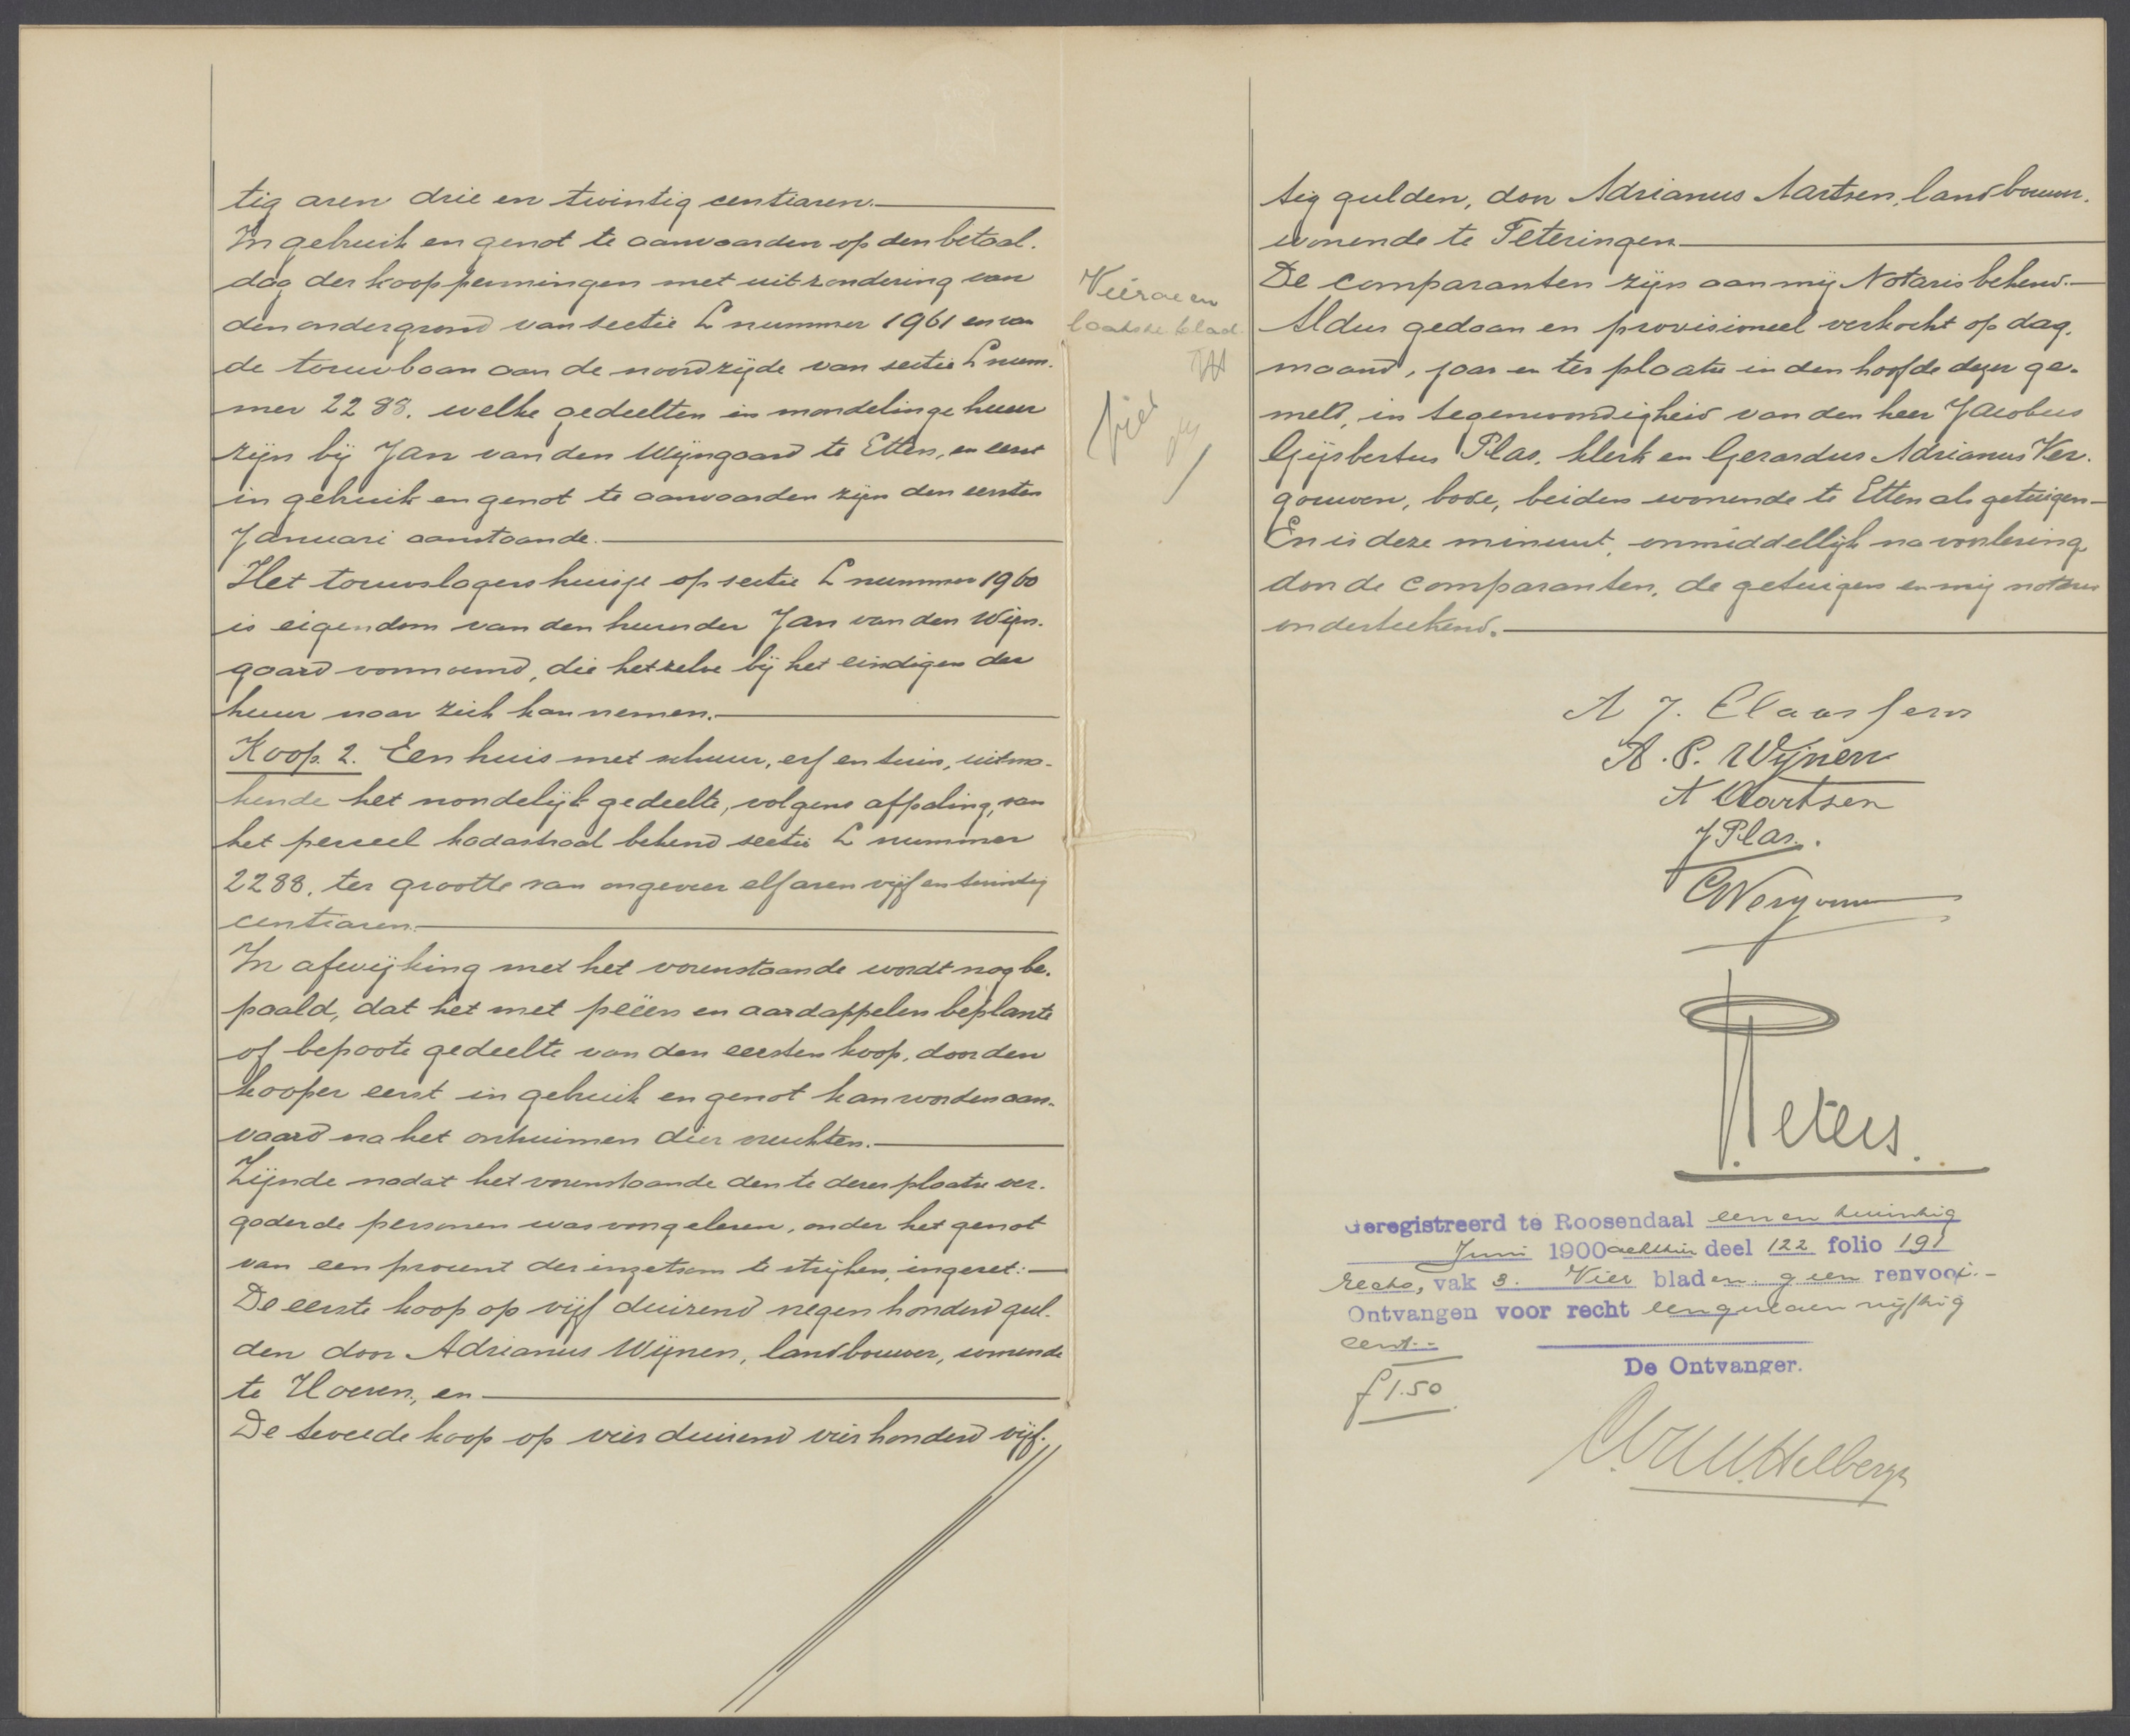 tig aren drie en twintig centiaren.
In gebruik en genot te aanvaarden op den betaal-
dag der kooppenningen met uitzondering van
den ondergrond van sectie L nummer 1961 en van
de touwbaan aan de noordzijde van sectie L num-
mer 2288. welke gedeelten in mondelinge huur
zijn bij Jan van den Wijngaard te Etten, en eerst
in gebruik en genot te aanvaarden zijn den eersten
Januari aanstaande.
Het touwslagershuisje op sectie L nummer 1960
is eigendom van den huurder Jan van den Wijn-
gaard voornoemd, die hetzelve bij het eindigen der
huur naar zich kan nemen.
Koop 2. Een huis met schuur, erf en tuin, uitma-
kende het noordelijk gedeelte, volgens afpaling, van
het perceel kadastraal bekend sectie L nummer
2288. ter grootte van ongeveer elf aren vijf en twintig
centiaren.
In afwijking met het vorenstaande wordt nog be-
paald, dat het met peëen en aardappelen beplante
of bepoote gedeelte van den eersten koop, door den
kooper eerst in gebruik en genot kan worden aan-
vaard na het ontruimen dier vruchten.
Zijnde nadat het vorenstaande den te dezer plaatse ver-
gaderde personen was voorgelezen, onder het genot
van een procent der inzetsom te strijken, ingezet:
De eerste koop op vijf duizend negen honderd gul-
den door Adrianus Wijnen, landbouwer, wonende
te Hoeven, en
De tweede koop op vier duizend vier honderd vijf-
Vierde en
laatste blad
tig gulden, door Adrianus Aartsen, landbouwer.
wonende te Teteringen.
De comparanten zijn aan mij Notaris bekend.
Aldus gedaan en provisioneel verkocht op dag,
maand, jaar en ter plaatse in den hoofde dezer ge-
meld, in tegenwoordigheid van den heer Jacobus
Gijsbertus Plas, klerk en Gerardus Adrianus Ver-
gouwen, bode, beiden wonende te Etten als getuigen
En is deze minuut, onmiddellijk na voorlezing
door de comparanten, de getuigen en mij notaris
onderteekend.
A J. Claassens
A. P. Wijnen
A Aartsen
J Plas.
GVergouwen
Peters.
Geregistreerd te Roosendaal een en twintig
Juni 1900 achttien deel 122 folio 191
recto, vak 3. Vier bladen geen renvooi.
Ontvangen voor recht een gulden vijftig
cent.
De Ontvanger.
f 1.50